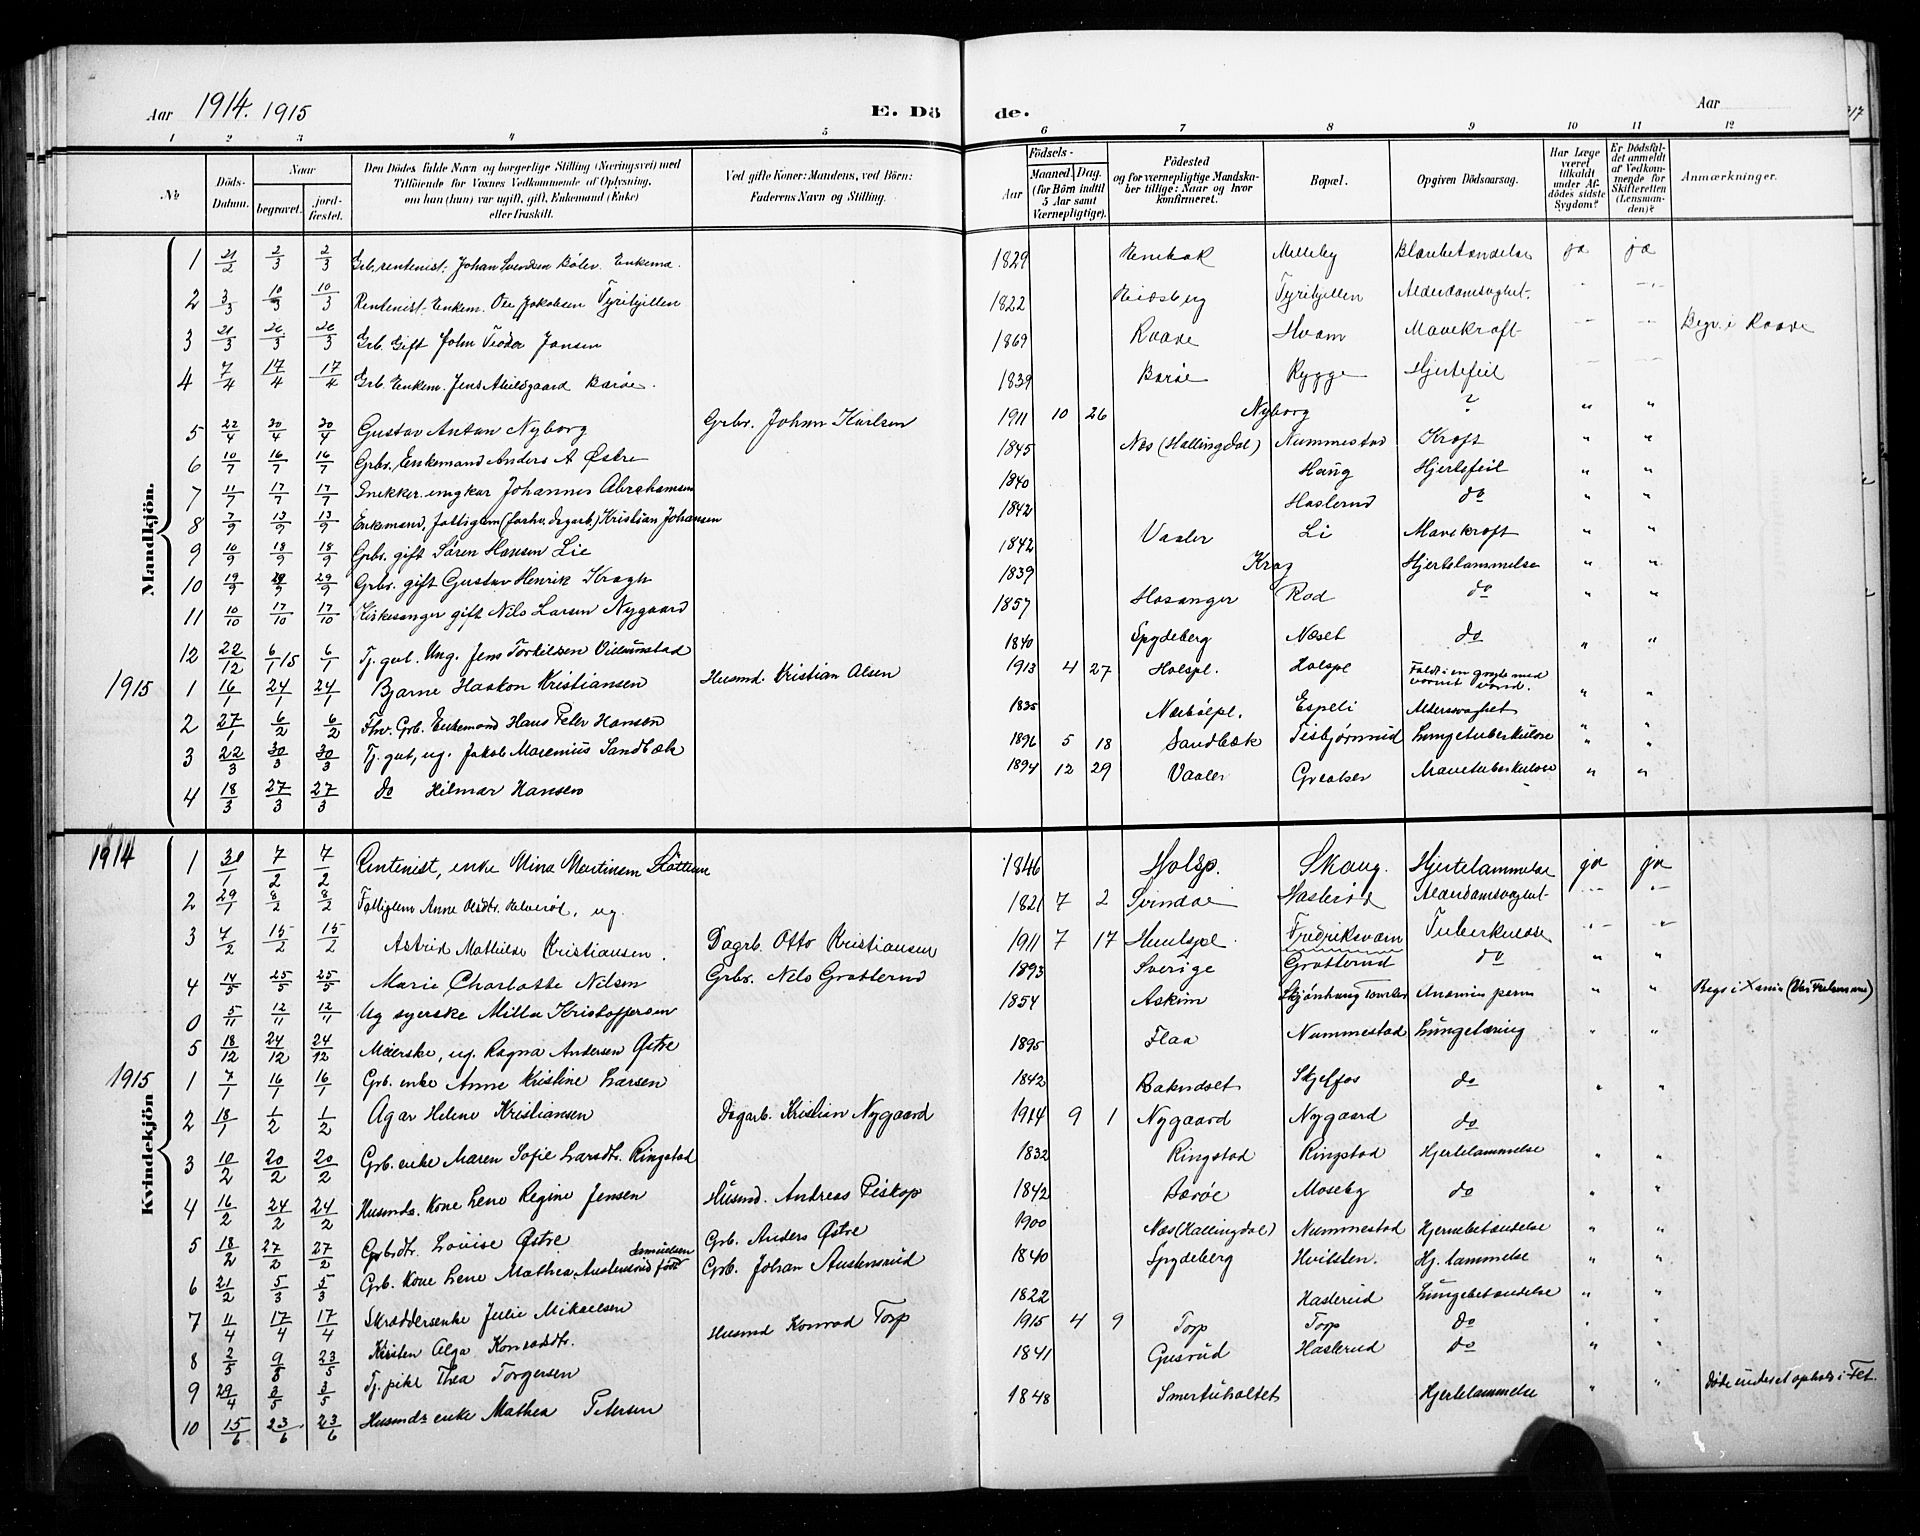 Aar 1914. 1915
E. Dö
de.
Aar
1 2 3 4 5 6 7 8 9 10 11 12
№
Döds-Datum.
Naar
begravet.
jord-fæstet.
Den Dödes fulde Navn og borgerlige Stilling (Næringsvei) med Tilföiende for Voxnes Vedkommende af Oplysning, om han (hun) var ugift, gift, Enkemand (Enke) eller fraskilt.
Ved gifte Koner: Mandens, ved Börn: Faderens Navn og Stilling.
Födsels-
Aar
Maaned. Dag. (for Börn indtil 5 Aar samt Værnepligtige).
Födested og for værnepligtige Mandskaber tillige: Naar og hvor konfirmeret.
Bopæl.
Opgiven Dödsaarsag.
Har Læge været tilkaldt under Afdödes sidste Sygdom?
Er Dödsfaldet anmeldt af Vedkommende for Skifteretten (Lensmanden)?
Anmærkninger.
Mandkjön.
1 21/2 2/3 2/3 Johan Svendsen 1829 ja ja
2 3/3 10/3 10/3 Rentenist. Enkem. Ole Jakobsen Tyrihjellen 1822 Tyrihjellen
3 21/3 26/3 26/3 Grb. Gift John Teodor Jansen 1869 Raade Hvam Mavekræft Begr. i Raade
4 7/4 17/4 17/4 Grb. Enkem. Jens 1839 Rygge Hjertefeil
5 22/4 30/4 30/4 Gustav Anton Nyborg Grbr. Johan Karlsen 1911 10 26 Nyborg ? " "
6 10/7 16/7 16/7 Grbr. Enkemand Anders A Østre 1845 Næs (Hallingdal) Nummestad Kræft " "
7 11/7 17/7 17/7 Snekker ungkar Johannes Abrahamsen 1840 Haug Hjertefeil " "
8 7/9 13/9 13/9 Enkemand, Kristian Johansen 1842 Haslerud do " "
9 10/9 18/9 18/9 Grbr. gift Søren Hansen Lie 1842 Vaaler Li Mavekræft " "
10 19/9 29/9 29/9 Grbr. gift Gustav Henrik Kragh 1839 Krog Hjertelammelse " "
11 10/10 17/10 17/10 Kirkesanger gift Nils Larsen Nygaard 1857 Hosanger Rod do " "
12 22/12 6/1 15 6/1 Tj. gut. Ung. Jens Torkilsen 1840 Spydeberg Næset do " "
1915 1 16/1 24/1 24/1 Bjarne Haakon Kristiansen Husmd. Kristian Olsen 1913 4 27 Holspl. Holspl Faldt i en gryte med varmt vand. " "
2 27/1 6/2 6/2 Fhv. Grb. Enkemand Hans Peter Hansen 1835 Espeli Alderssvaghet " "
3 22/3 30/3 30/3 Tj. gut, ug. Jakob Marenius Sandbæk 1896 5 18 Sandbæk Lungetuberkulose " "
4 18/3 27/3 27/3 do Hilmar Hansen 1894 12 29 Vaaler Mavetuberkulose " "
Kvindekjön
1914 1 31/1 7/2 7/2 Rentenist, enke Mina Martinsen 1846 Holsp. Skaug. Hjertelammelse ja ja
2 29/1 8/2 8/2 Anne Olsdtr. ug. 1821 7 2 Svindal
3 7/2 15/2 15/2 Astrid Mathilde Kristiansen. Dagrb. Otto Kristiansen 1911 7 17 Fredriksværn Tuberkulose
4 14/5 25/5 25/5 Marie Charlotte Nilsen Grbr. Nils Grøtterud 1893 Sverige Grøtterud do " "
0 5/11 12/11 12/11 Ug syerske Milla Kristoffersen 1854 Askim " "
5 18/12 24/12 24/12 Meierske, ug. Ragna Andersen Østre 1895 Flaa Nummestad Lungetæring " "
1915 1 7/1 16/1 16/1 Grb. enke Anne Kristine Larsen 1842 Skjelfos do " "
2 18/1 1/2 1/2 Agar Helene Kristiansen Dagarb. Kristian Nygaard 1914 9 1 Nygaard Nygaard do
3 10/2 20/2 20/2 Grb. enke Maren Sofie Larsdtr. Ringstad 1832 Ringstad Ringstad Hjertelammelse " "
4 16/2 24/2 24/2 Husmds. Kone Lene Regine Jensen Husmd. Andreas Piskop 1842 Moseby do " "
5 18/2 27/2 27/2 Grbrdtr. Lovise Østre Grb. Anders Østre 1900 Næs (Hallingdal) Nummestad Hjernebetændelse " "
6 21/2 5/3 5/3 Grb. Kone Lene Mathea Austensrud født Samuelsen Grb. Johan Austensrud 1840 Spydeberg Hvitsten. Hj. lammelse " "
7 11/4 17/4 17/4 Skræddersenke Julie Mikaelsen 1822 Haslerud Lungebetændelse " "
8 2/5 9/8 23/5 Kirsten Alga Konradsdtr. Husmd Konrad Torp 1915 4 9 Torp Torp do
9 29/4 3/5 3/5 Tj. pike Thea Torgersen 1841 Gusrud Haslerud do " "
10 15/6 23/6 23/6 Husmds enke Mathea Petersen 1848 Hjertelammelse " " Døde under et ophold i Fet.